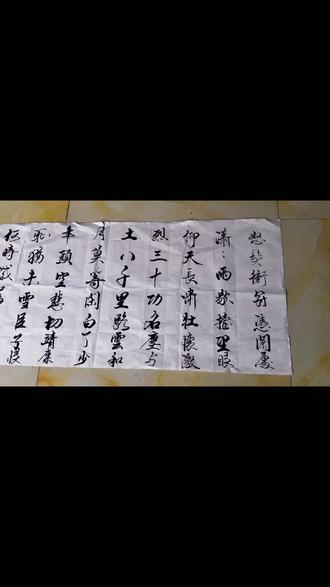 怒髮衝冠憑闌處
瀟々雨歇擡望眼
仰天長嘯壯懷激
烈三十功名塵与
土八千里路雲和
月莫等閑白了少
年頭空悲切靖康
恥猶未雪臣子恨
何時滅